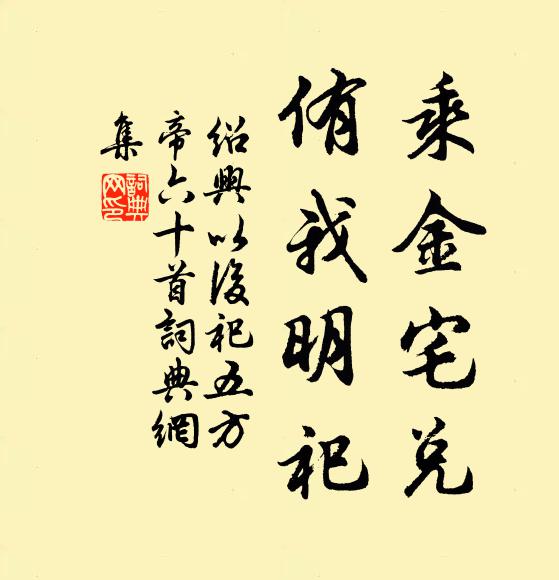 乘金宅兌
侑我明祀
紹興以後祀五方
帝六十首詞典網
集
詞典
网印